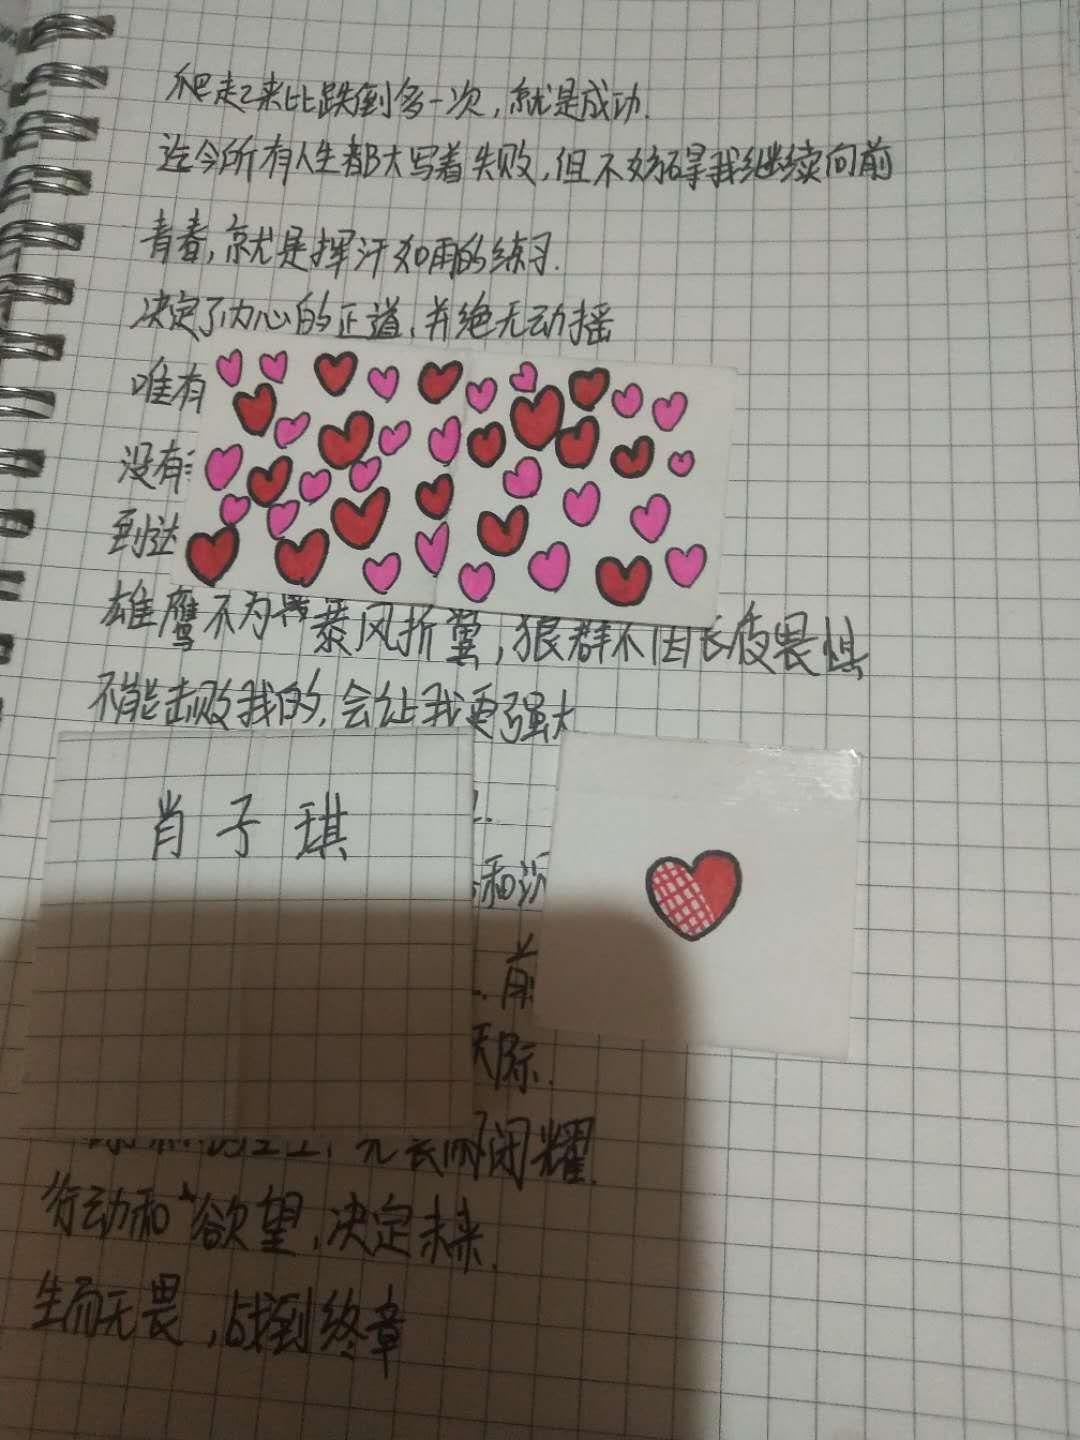 爬起来比跌倒多一次,就是成功.
迄今所有人生都大写着失败,但不妨碍我继续向前
青春,就是挥汗如雨的练习.
决定了内心的正道,并绝无动摇
唯有
没有
到达
雄鹰不为暴风折翼,狼群不因长夜畏惧
不能击败我的,会让我更强大
肖子琪
和沙
前
天际.
光长而闭耀.
行动和欲望,决定未来.
生而无畏,战到终章